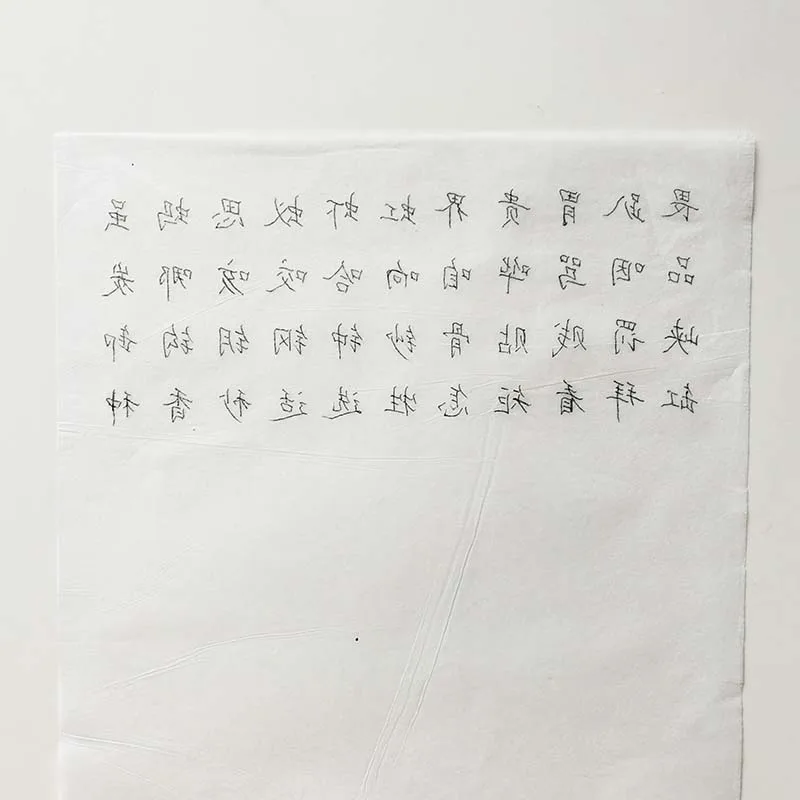 畏趴胃贵界虹虾蚁思蚂虽
品咽骂哗咱响哈咬咳哪炭
峡罚贱贴骨钞钟钢钥钩卸
缸拜看矩怎牲选适秒香种